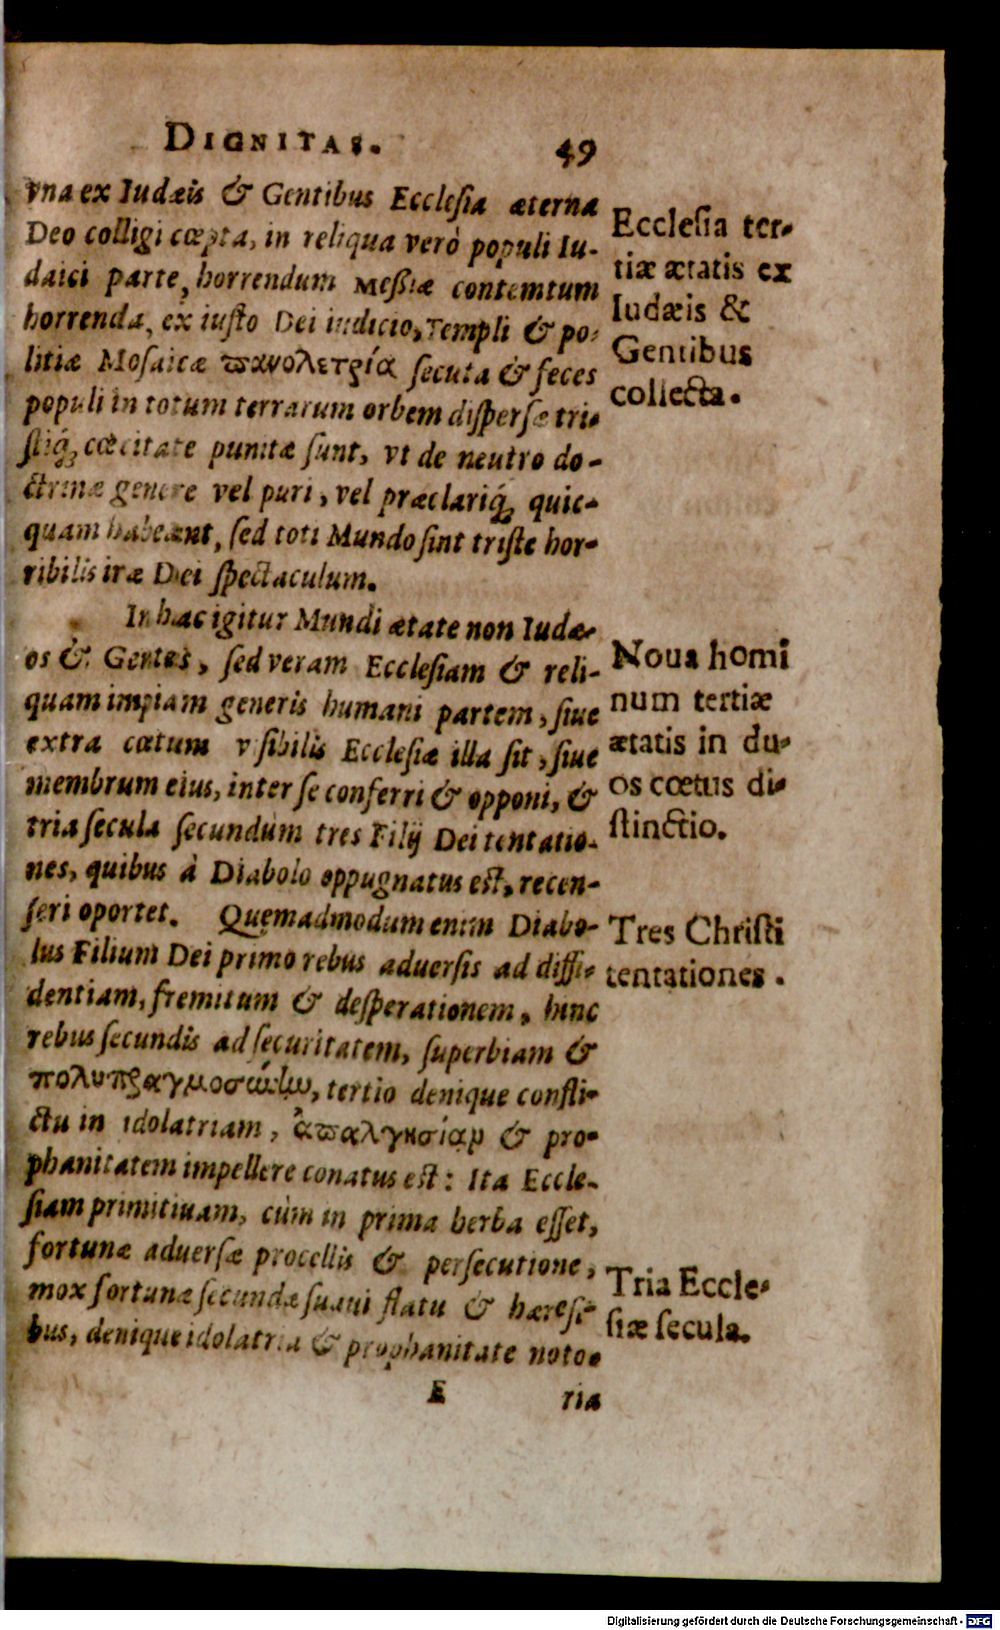 DIGNITAS. 49
vna ex Iudæis & Gentibus Ecclesia æterna
Deo colligi cœpta, in reliqua verò populi Iu-
daici parte, horrendum Messiæ contemtum
horrenda, ex iusto Dei iudicio, Templi & po-
litiæ Mosaicæ πανολετρία secuta & feces
populi in totum terrarum orbem dispersæ tri-
stiq́; cœcitate punitæ sunt, vt de neutro do-
ctrinæ genere vel puri, vel præclariq́; quic-
quam habeant, sed toti Mundo sint triste hor-
ribilis iræ Dei spectaculum.
In hac igitur Mundi ætate non Iudæ-
os & Gentes, sed veram Ecclesiam & reli-
quam impiam generis humani partem, siue
extra cœtum visibilis Ecclesiæ illa sit, siue
membrum eius, inter se conferri & opponi, &
tria secula secundum tres Filij Dei tentatio-
nes, quibus à Diabolo oppugnatus est, recen-
seri oportet. Quemadmodum enim Diabo-
lus Filium Dei primo rebus aduersis ad diffi-
dentiam, fremitum & desperationem, hinc
rebus secundis ad securitatem, superbiam &
πολυπραγμοσύνην, tertio denique confli-
ctu in idolatriam, ἀπαλγησίαν & pro-
phanitatem impellere conatus est: Ita Eccle-
siam primitiuam, cùm in prima herba esset,
fortunæ aduersæ procellis & persecutione,
mox fortunæ secundæ suaui flatu & hæresi-
bus, denique idolatria & prophanitate noto-
E ria
Ecclesia ter-
tiæ ætatis ex
Iudæis &
Gentibus
collecta.
Noua homi
num tertiæ
ætatis in du-
os cœtus di-
stinctio.
Tres Christi
tentationes.
Tria Eccle-
siæ secula.
Digitalisierung gefördert durch die Deutsche Forschungsgemeinschaft - DFG